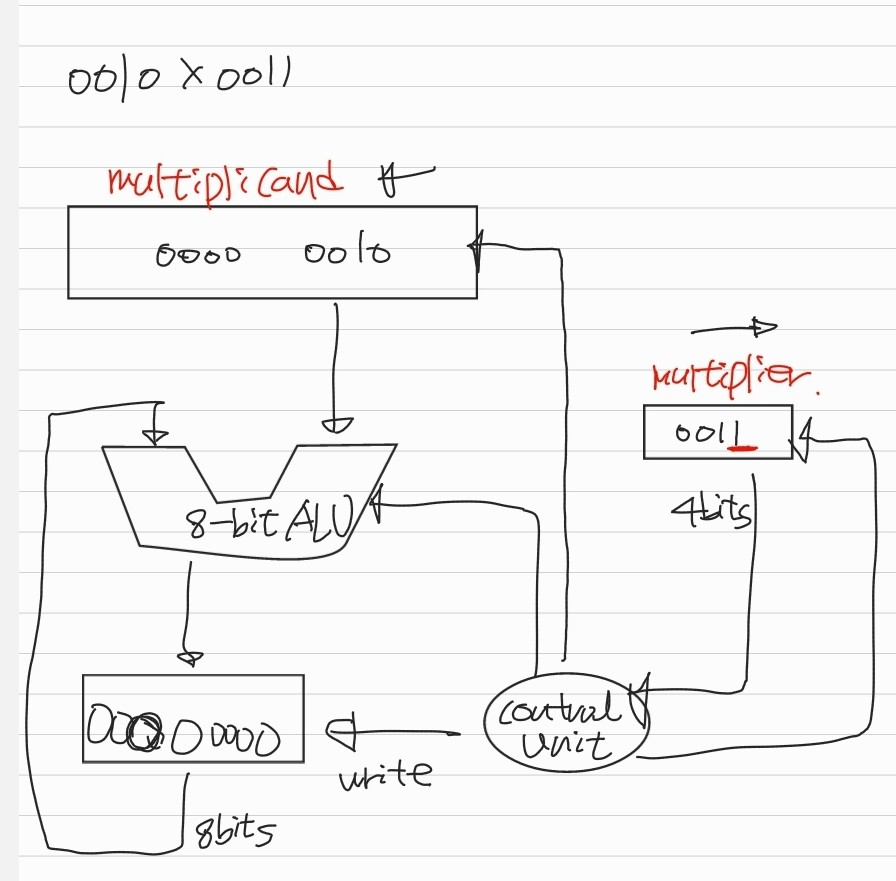 0010 × 0011
multiplicand
0000 0010
multiplier.
0011
4bits
8-bit ALU
control
unit
0000 0000
write
8bits